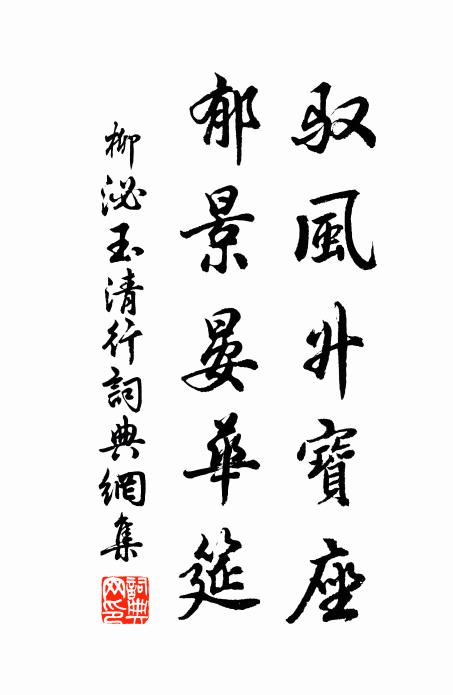 馭風升寶座
郁景晏華筵
柳泌玉清行詞典網集